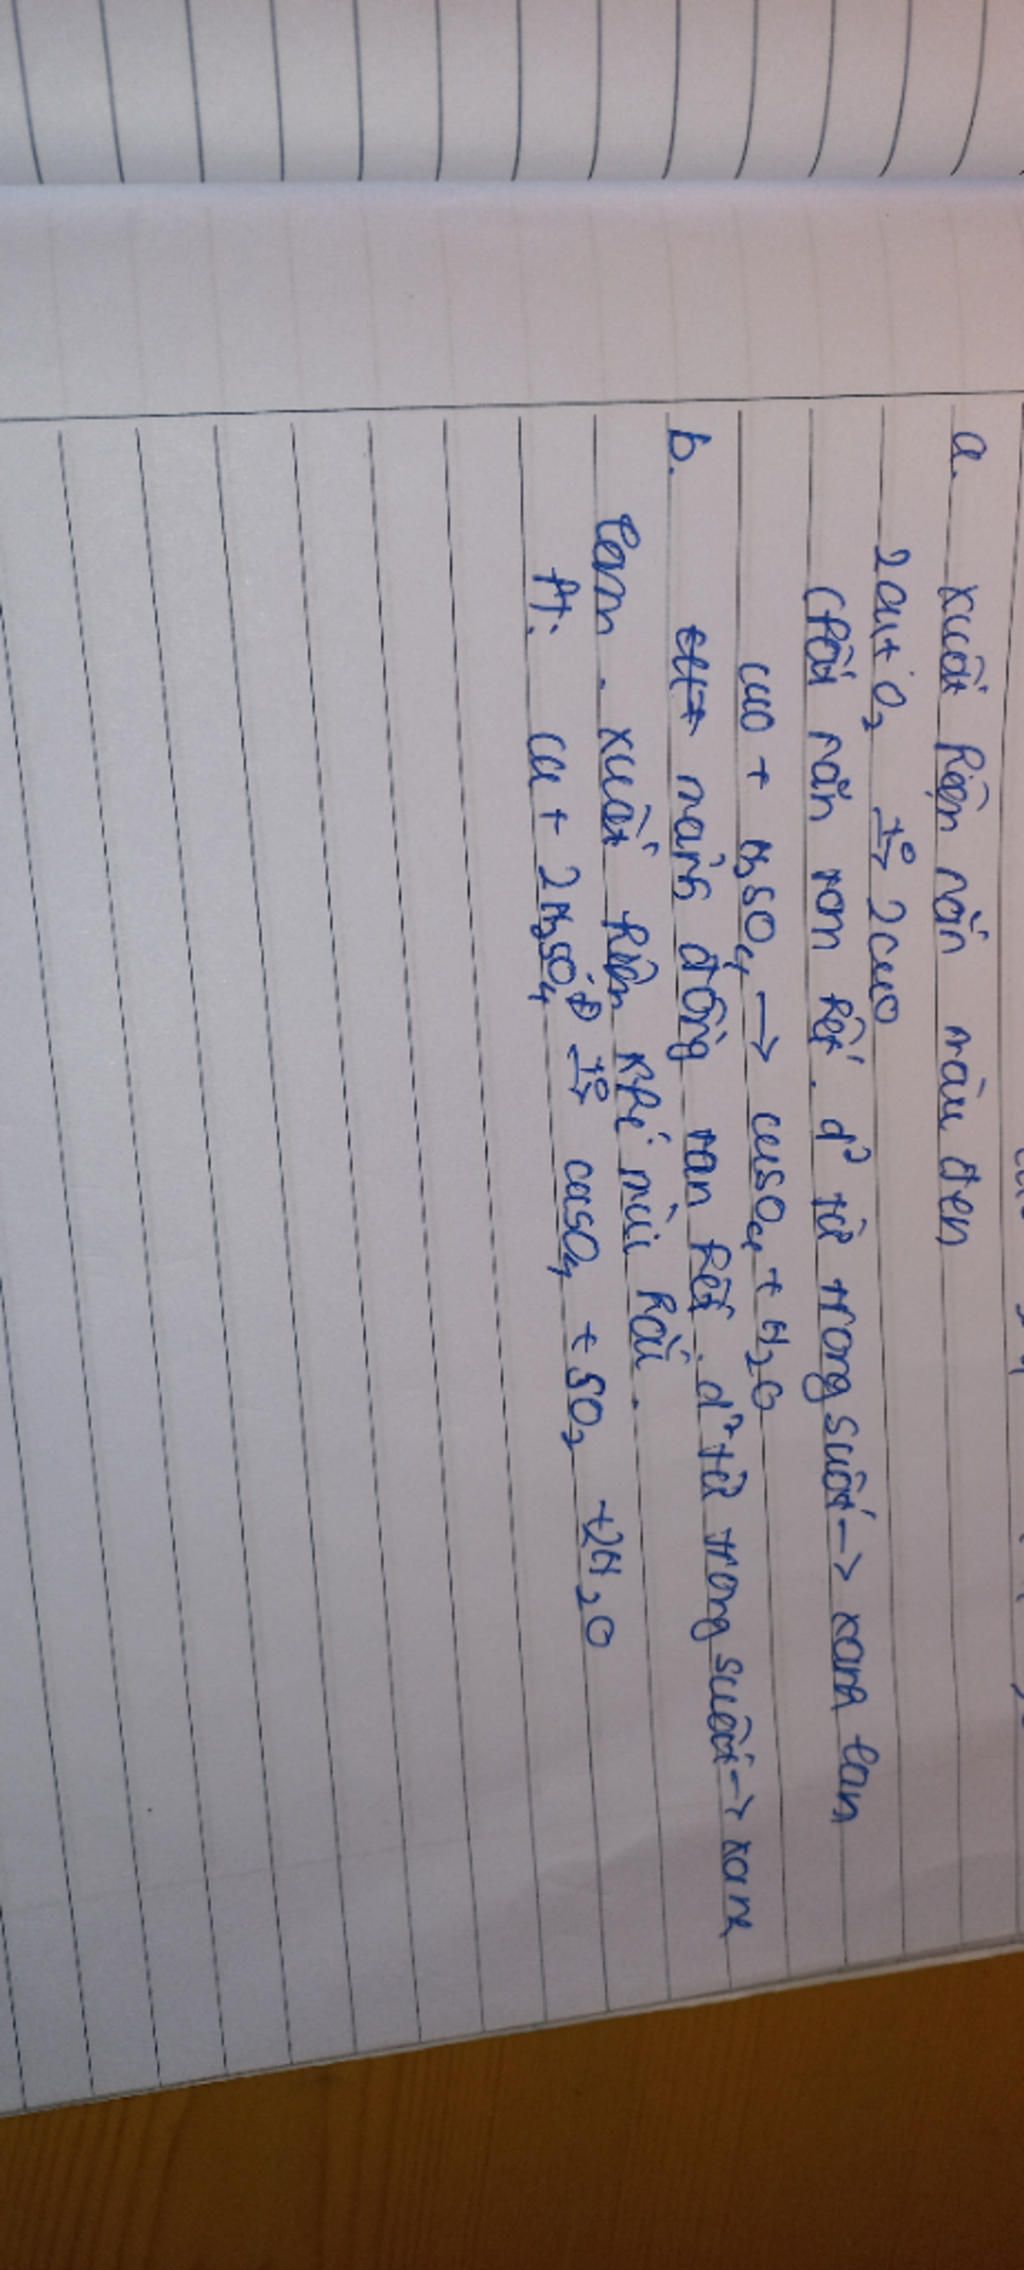 a. xuất hiện rắn màu đen
2Cu + O₂ t°→ 2CuO
Chất rắn tan hết. d² từ trong suốt → xanh lam
CuO + H₂SO₄ → CuSO₄ + H₂O
b. mảnh đồng tan hết. d² từ trong suốt → xanh
lam. xuất hiện khí mùi hắc.
Pt: Cu + 2H₂SO₄ đ t°→ CuSO₄ + SO₂ + 2H₂O